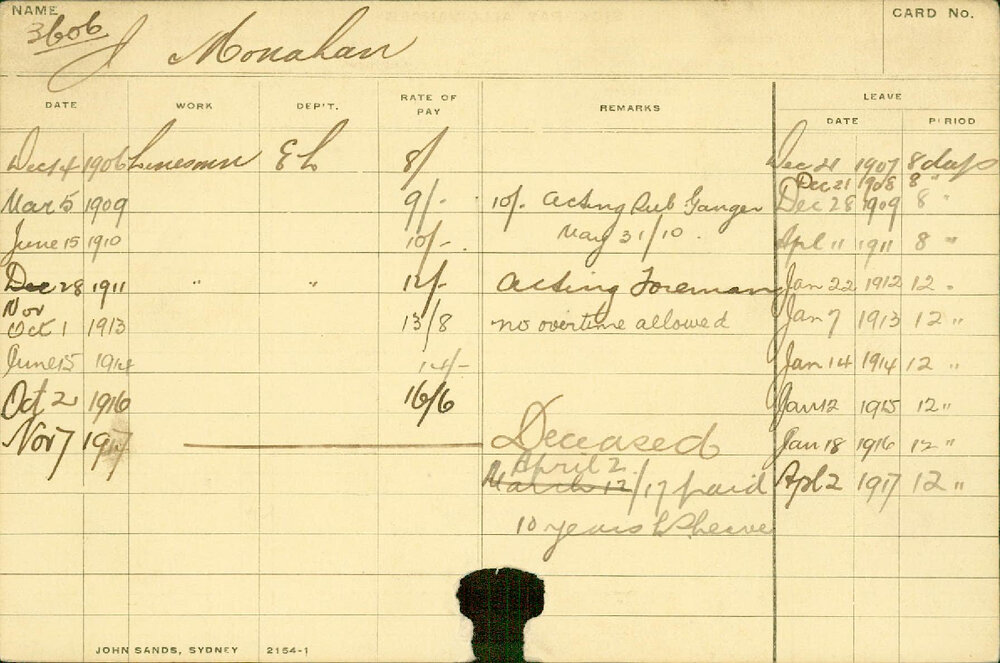 NAME
3606
J Monahan
CARD No.
DATE WORK DEP'T. RATE OF PAY REMARKS LEAVE
DATE PERIOD
Dec 14 1906 Linesman E L 8/ Dec 21 1907 8 days
Dec 21 1908 8 "
Mar 5 1909 9/- 10/- Acting Sub Ganger Dec 28 1909 8 "
May 31/10
June 15 1910 10/- Apl 11 1911 8 "
Dec 28 1911 " " 12/- Acting Foreman Jan 22 1912 12 "
Nov
Oct 1 1913 13/8 no overtime allowed Jan 7 1913 12 "
June 15 1914 14/- Jan 14 1914 12 "
Oct 2 1916 16/6 Jan 12 1915 12 "
Nov 7 1917 Deceased Jan 18 1916 12 "
April 2
March 12/17 paid Apl 2 1917 12 "
10 years L S leave
JOHN SANDS, SYDNEY 2154-1